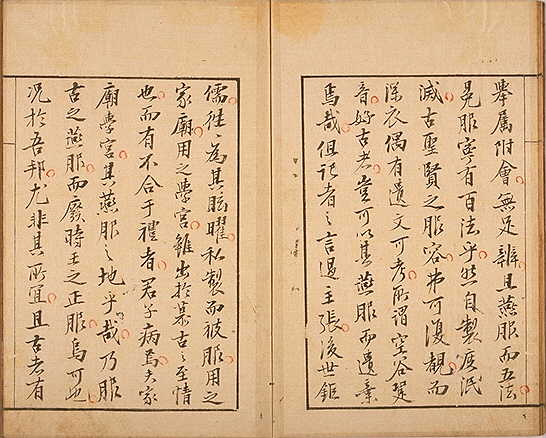 舉属附會無足辨且燕服而五法
冕服寧有百法乎然自製度泯
滅古聖賢之服容弗可復覩而
深衣偶有遺文可考所謂空谷跫
音好古者豈可以其燕服而遺棄
焉哉但記者之言過主張後世鉅
儒往々爲其眩曜私製而被服用之
家廟用之學宮雖出於慕古之至情
也而有不合于禮者君子病焉夫家
廟學宮其燕服之地乎哉乃服
古之燕服而廢時王之正服烏可也
况於吾邦尤非其所宜且古者有